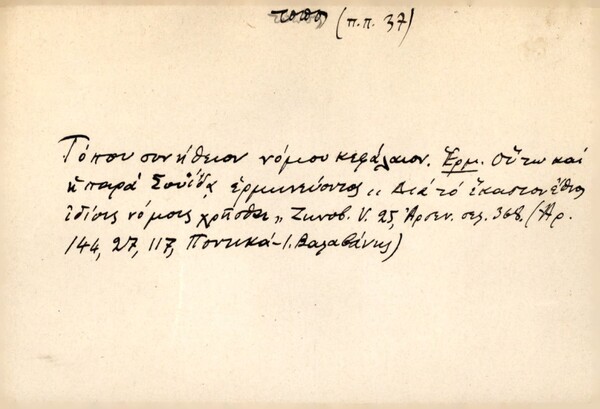 τόπος (π.π. 37)
Τόπου συνήθειον νόμου κεφάλαιον. Ἑρμ. Οὕτω καὶ
ἡ παρὰ Σουΐδᾳ ἑρμηνεύοντος „Διὰ τὸ ἕκαστον ἔθνος
ἰδίοις νόμοις χρῆσθαι„ Ζηνοβ. V. 25, Ἀρσεν. σελ. 368, (Ἀρ.
144, 27, 117, Ποντικά - Ι. Βαλαβάνης)